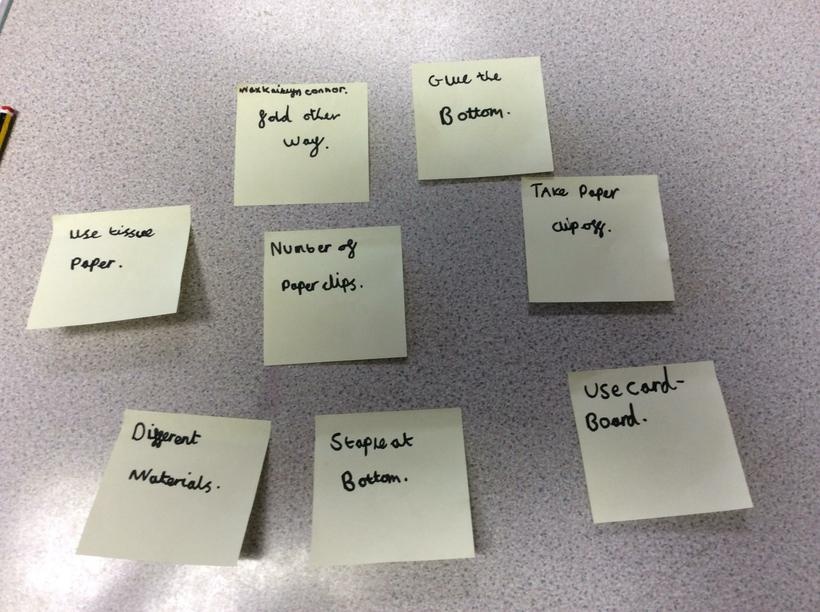 Max Kaitlyn connor.
fold other
way.
Glue the
Bottom.
Take Paper
clip off.
Use tissue
Paper.
Number of
Paper clips.
Use Card-
Board.
Different
Materials.
Staple at
Bottom.